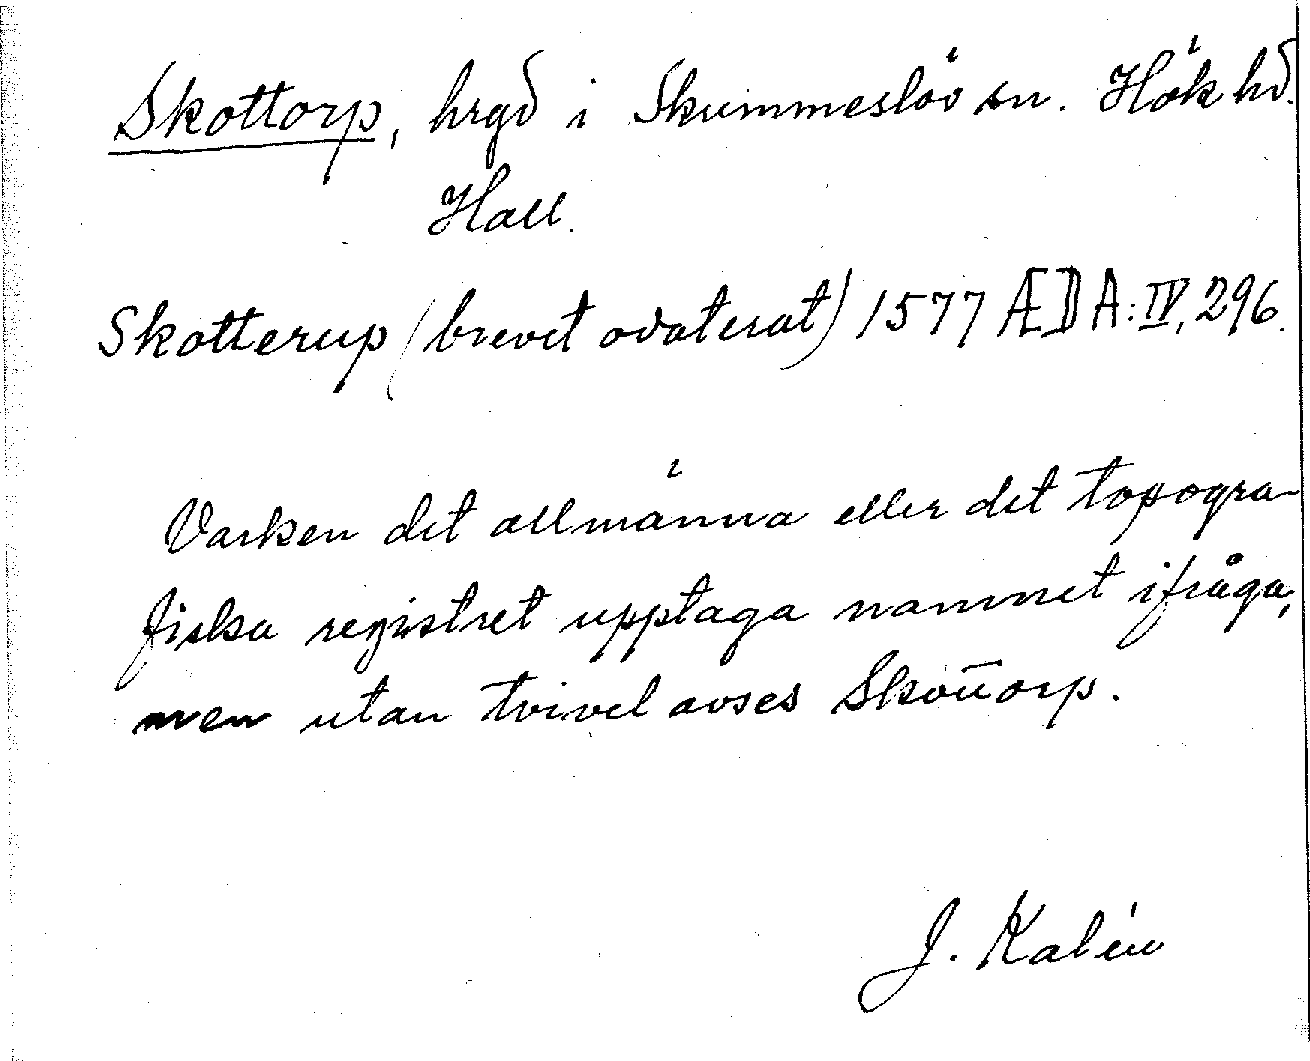 Skottorp, hrgd i Skummeslöv sn. Hök hd.
Hall.
Skotterup (brevet odaterat) 1577 ÆDA: IV, 296.
Varken det allmänna eller det topogra-
fiska registret upptaga namnet ifråga,
men utan tvivel avses Skottorp.
J. Kalén